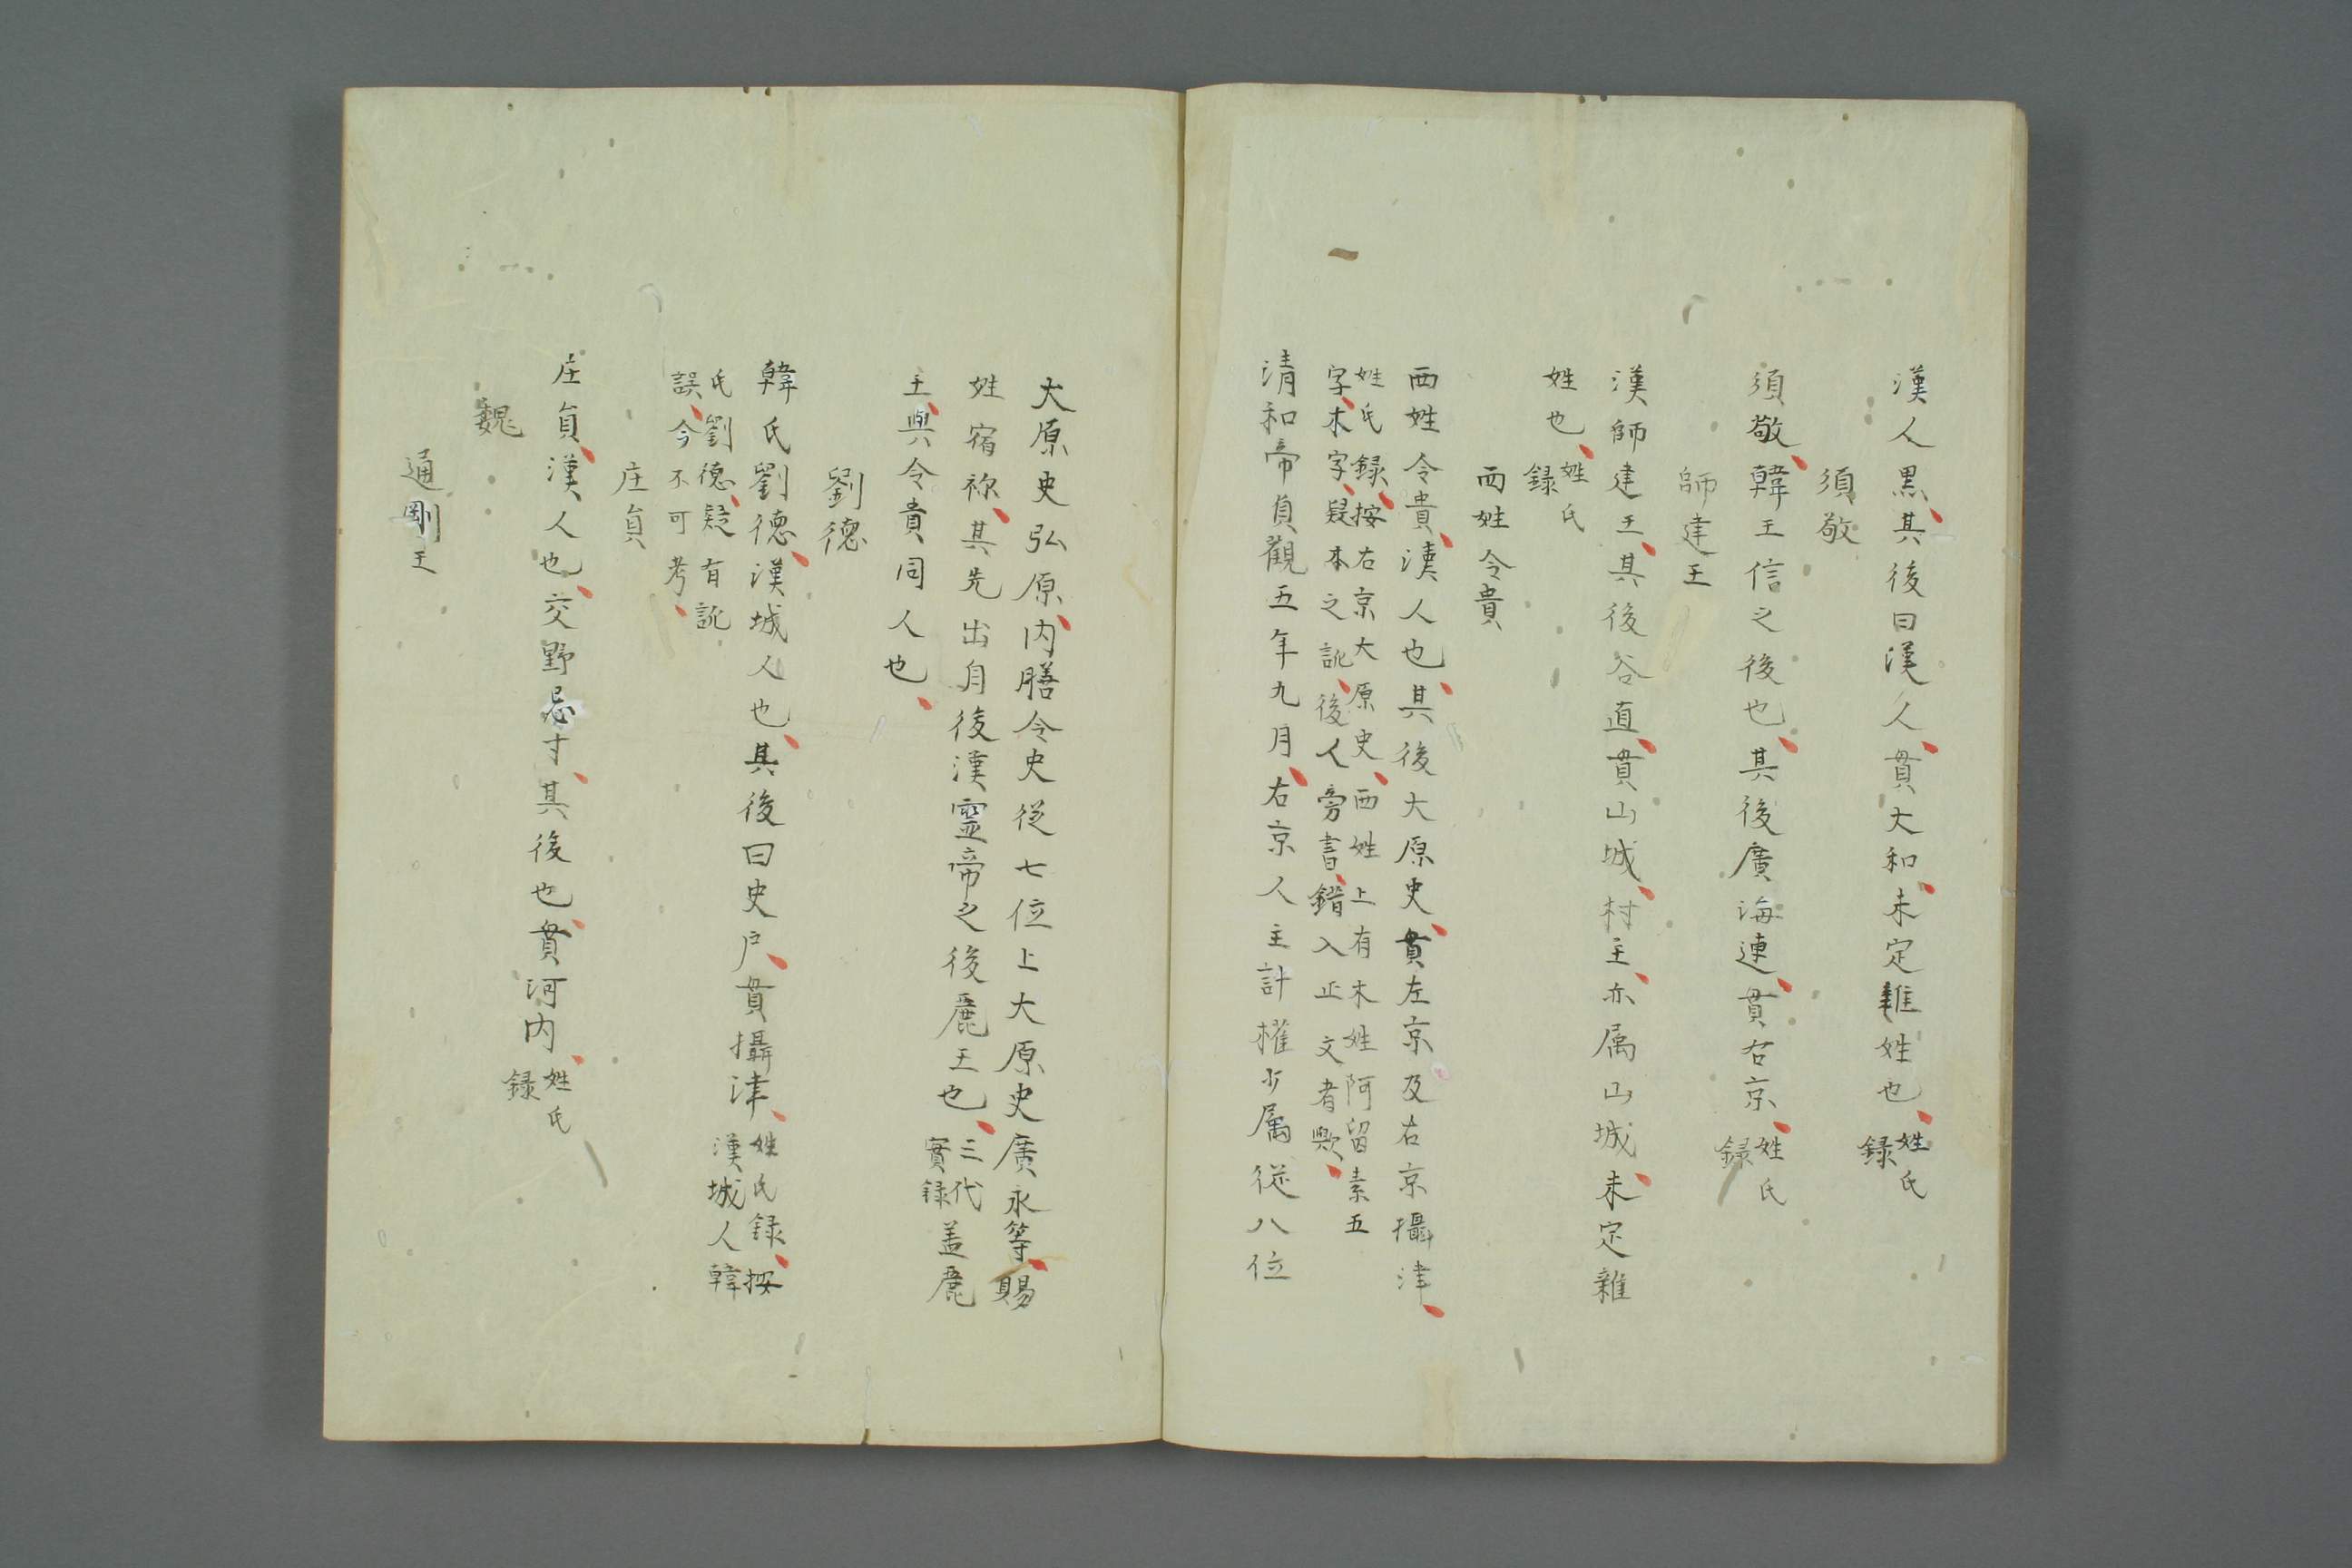 漢人黒、其後曰漢人、貫大和、未定雜姓也、姓氏録
須敬
須敬、韓王信之後也、其後廣海連、貫右京、姓氏録
師建王
漢師建王、其後谷直、貫山城、村主、亦属山城、未定雜
姓也、姓氏録
西姓令貴
西姓令貴、漢人也、其後大原史、貫左京及右京攝津、
姓氏録、按右京大原史、西姓上有木姓阿留素五
字、木字、疑本之訛、後人旁書、錯入正文者歟、
清和帝貞觀五年九月、右京人主計權少属従八位
大原史弘原、内膳令史従七位上大原史廣永等、賜
姓宿祢、其先出自後漢靈帝之後麗王也、三代實録盖麗
王、與令貴同人也、
劉德
韓氏劉德、漢城人也、其後曰史戸、貫攝津、姓氏録、按漢城人韓
氏劉德、疑有訛
誤、今不可考、
庄貟
庄貟、漢人也、交野忌寸、其後也、貫河内、姓氏録
魏
通剛王